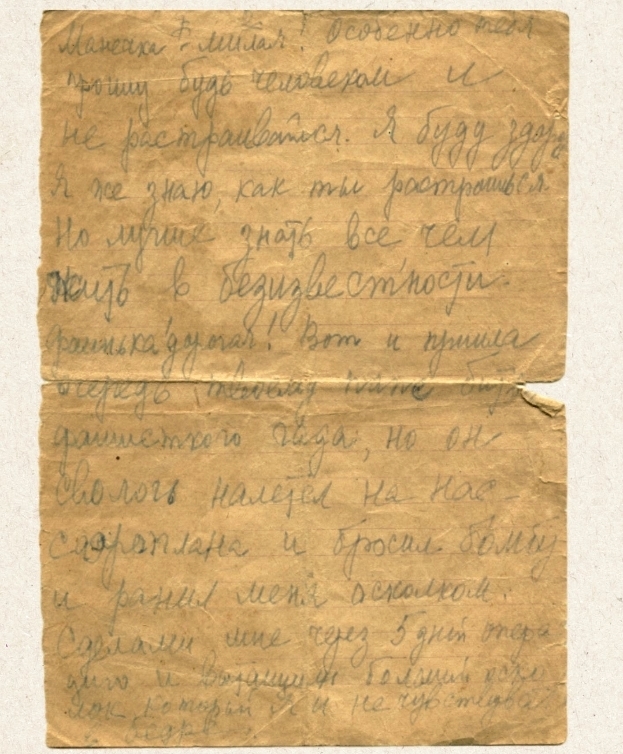 Манечка! милая! Особенно тебя
прошу будь человеком и
не растраивайся. Я буду здоро
Я же знаю, как ты
Но лучше знать все чем
жить в безизвестности.
дорогая! Вот и пришла
очередь твоему папке бить
фашисткого гада, но он
сволочь налетел на нас
саэраплана и бросил бомбу
и ранил меня асколком.
Сделали мне через 5 дней опера
цию и большой оско
лок который я и не чувствовал